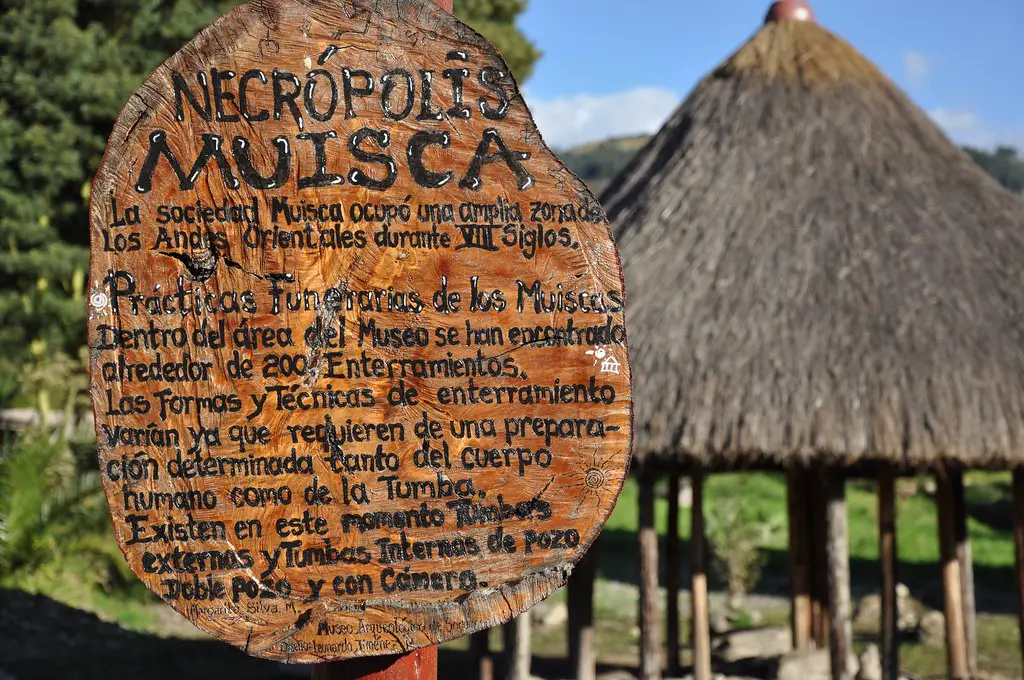 NECRÓPOLIS
MUISCA
La sociedad Muisca ocupó una amplia zona de
los Andes Orientales durante VIII Siglos.
Prácticas Funerarias de los Muiscas
Dentro del área del Museo se han encontrado
alrededor de 200 Enterramientos.
Las Formas y Técnicas de enterramiento
varían ya que requieren de una prepara-
ción determinada tanto del cuerpo
humano como de la Tumba.
Existen en este momento Tumbas
externas y Tumbas Internas de pozo
Doble Pozo y con Cámara.
Margarita Silva. M.
Museo Arqueológico de
Leonardo Jiménez